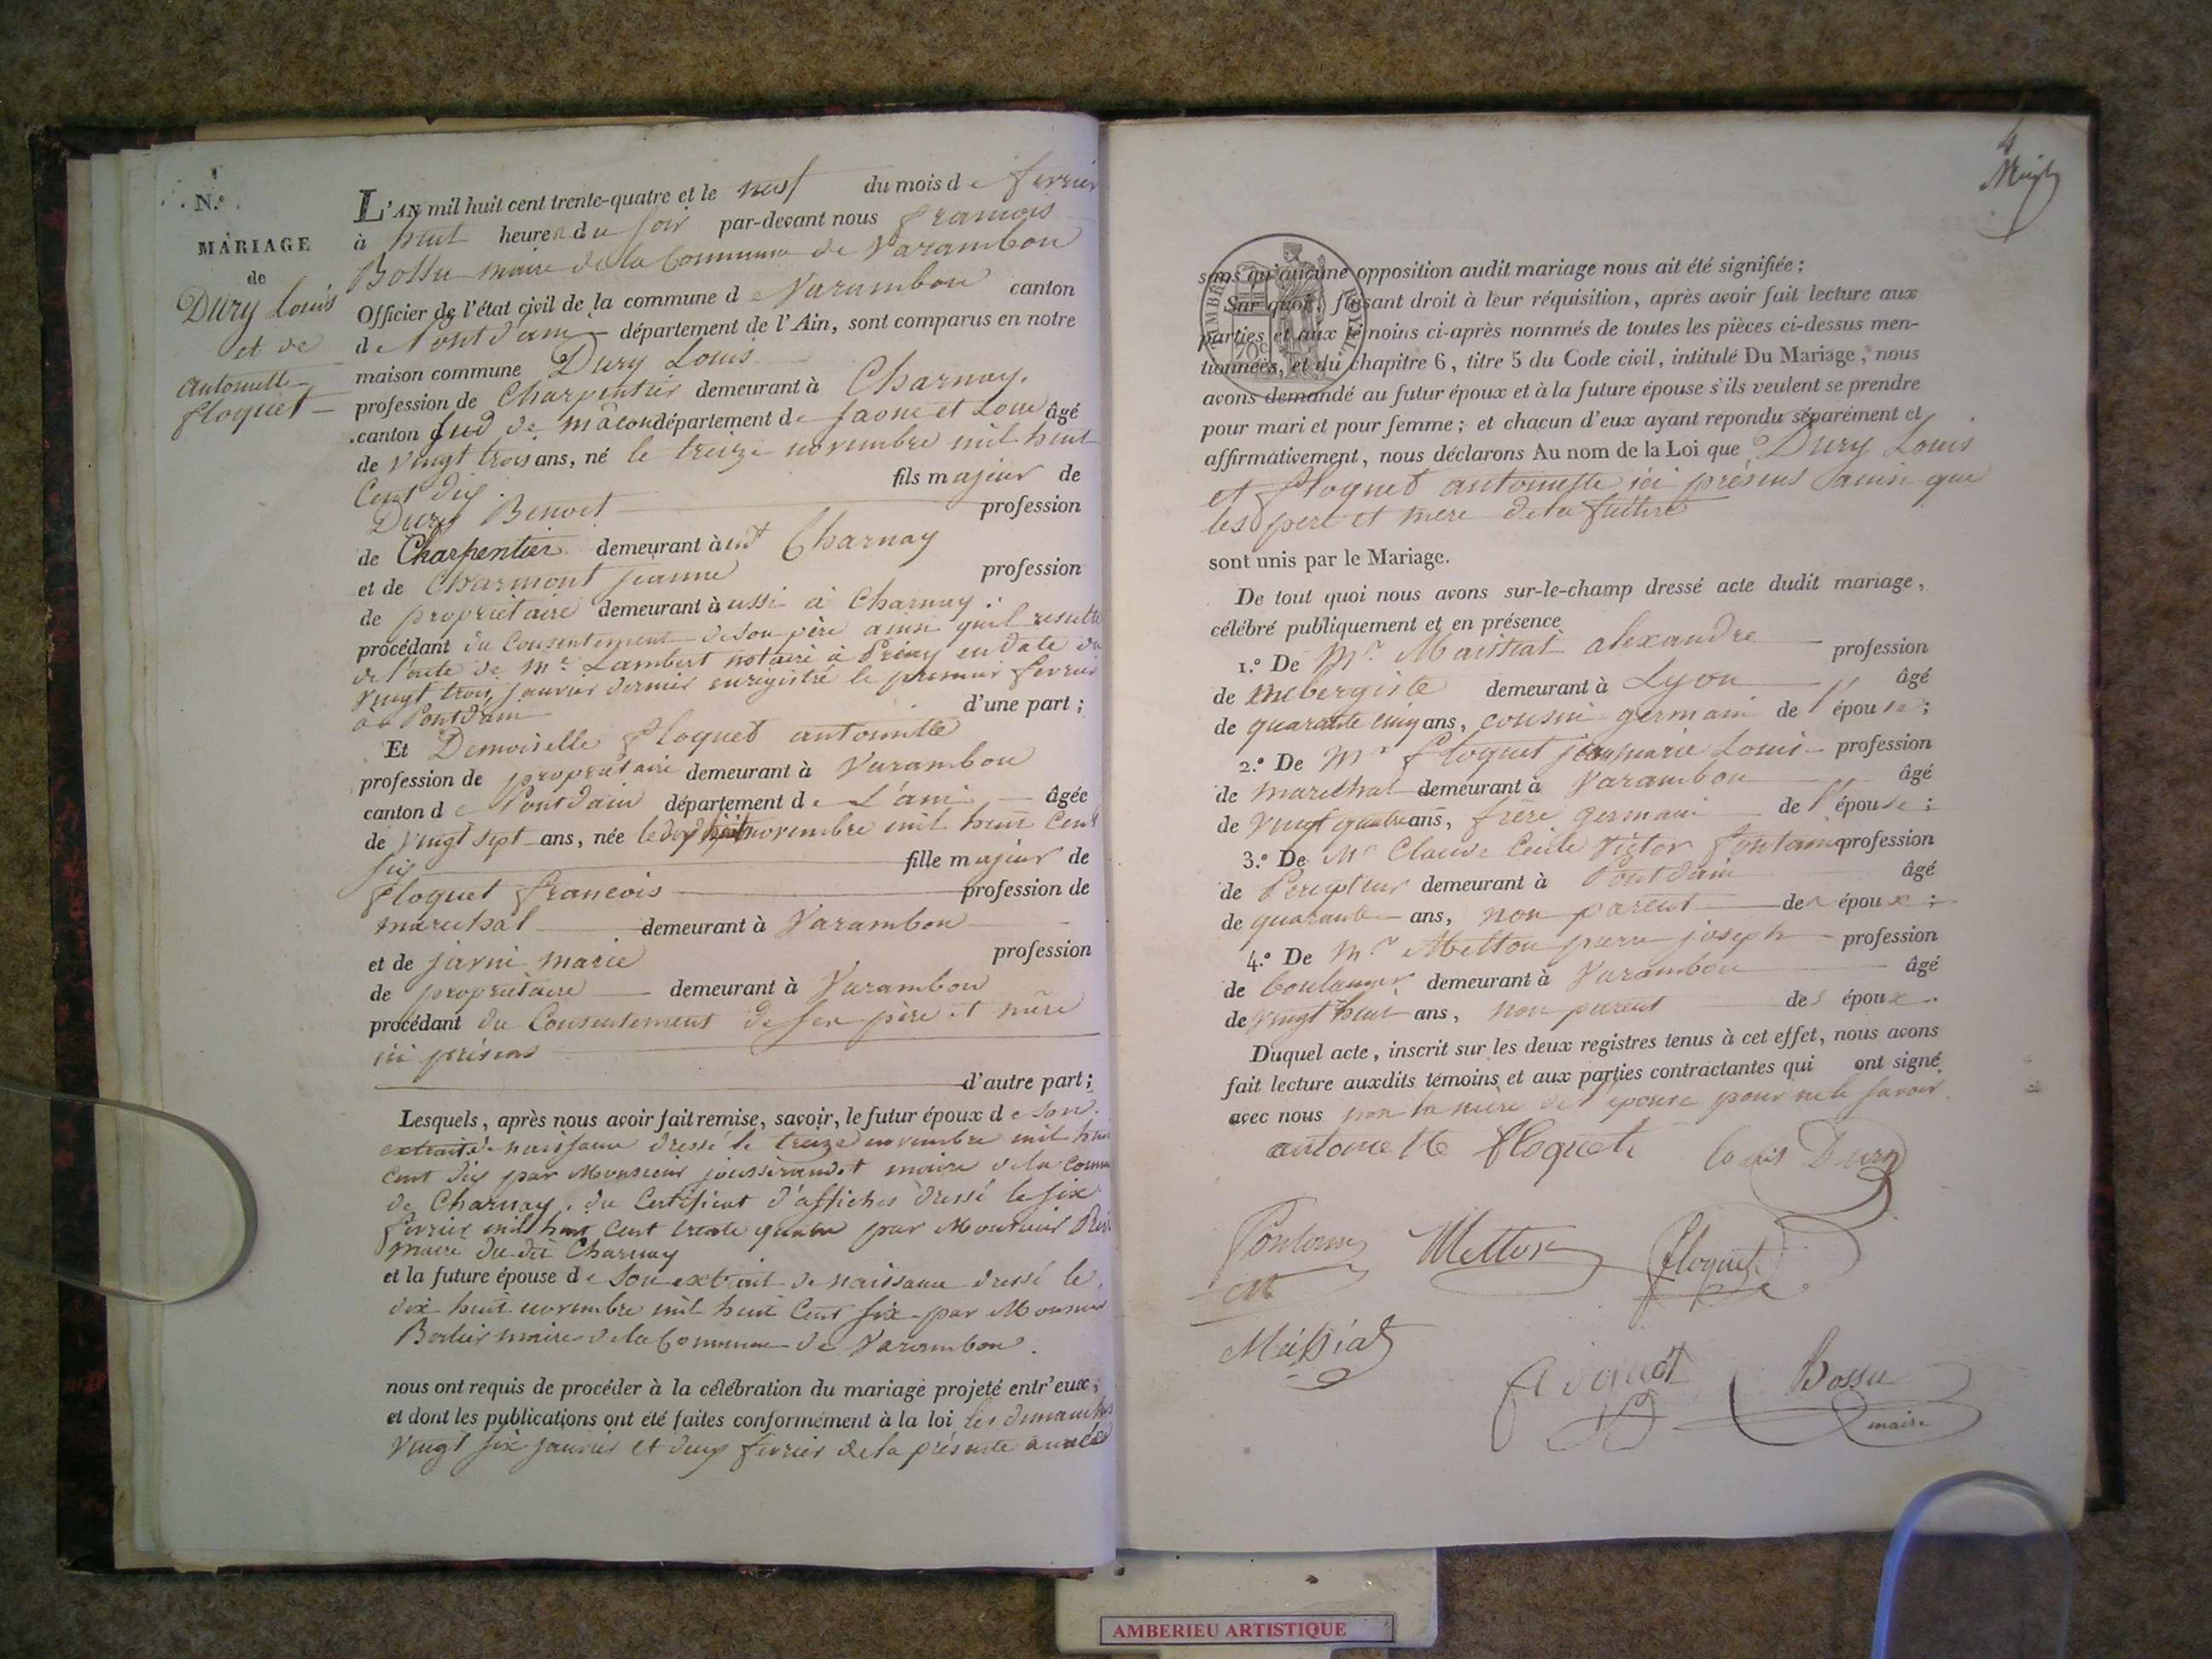 N.º
MARIAGE
de
Dury Louis
et de
antoinette
floquet
L'AN mil huit cent trente-quatre et le neuf du mois de fevrier
à huit heures du soir par-devant nous francois
Bossu maire de la Commune de Varambon
Officier de l'état civil de la commune de Varambon canton
de Pontdain département de l'Ain, sont comparus en notre
maison commune Dury Louis
profession de Charpentier demeurant à Charnay.
canton sud de mâcon département de saone et Loire âgé
de vingt trois ans, né le treize novembre mil huit
Cent dix. fils majeur de
Dury Benoit profession
de Charpentier demeurant audt Charnay
et de Charmont jeanne profession
de propriétaire demeurant aussi à Charnay.
procédant du Consentement de son père ainsi qu'il resulte
de l'acte de Mr Lambert notaire à en date du
vingt trois janvier dernier enregistré le premier fevrier
à Pontdain d'une part ;
Et Demoiselle floquet antoinette
profession de propriétaire demeurant à Varambon
canton de Pontdain département de L'ain âgée
de vingt sept ans, née le dix huit novembre mil huit Cent
six fille majeur de
floquet francois profession de
marechal demeurant à Varambon
et de marie profession
de propriétaire demeurant à Varambon
procédant du Consentement de ses père et mère
ici présens
d'autre part ;
Lesquels, après nous avoir fait remise, savoir, le futur époux de son
extrait de naissance dressé le treize novembre mil huit
cent dix par Monsieur maire de la Comm
de Charnay, du Certificat d'affiches dressé le six
fevrier mil huit Cent trente quatre par Monsieur
maire du dit Charnay
et la future épouse de son extrait de naissance dressé le
dix huit novembre mil huit Cent six par Monsieur
maire de la Commune de Varambon.
nous ont requis de procéder à la célébration du mariage projeté entr'eux,
et dont les publications ont été faites conformément à la loi les dimanches
vingt six janvier et deux fevrier de la présente année
4
sans qu'aucune opposition audit mariage nous ait été signifiée ;
Sur quoi, faisant droit à leur réquisition, après avoir fait lecture aux
parties et aux témoins ci-après nommés de toutes les pièces ci-dessus men-
tionnées, et du chapitre 6, titre 5 du Code civil, intitulé Du Mariage, nous
avons demandé au futur époux et à la future épouse s'ils veulent se prendre
pour mari et pour femme ; et chacun d'eux ayant répondu séparément et
affirmativement, nous déclarons Au nom de la Loi que Dury Louis
et floquet antoinette ici présens ainsi que
les pere et mere de la future
sont unis par le Mariage.
De tout quoi nous avons sur-le-champ dressé acte dudit mariage,
célébré publiquement et en présence
1.º De Mr alexandre profession
de aubergiste demeurant à Lyon âgé
de quarante cinq ans, cousin germain de l'épouse ;
2.º De Mr floquet jean marie Louis profession
de marechal demeurant à Varambon âgé
de vingt quatre ans, frère germain de l'épouse ;
3.º De Mr Claude Cécile Victor profession
de Percepteur demeurant à Pontdain âgé
de quarante ans, non parent des époux ;
4.º De Mr Metton pierre joseph profession
de boulanger demeurant à Varambon âgé
de vingt huit ans, non parent des époux.
Duquel acte, inscrit sur les deux registres tenus à cet effet, nous avons
fait lecture auxdits témoins et aux parties contractantes qui ont signé
avec nous non la mère de l'épouse pour ne le savoir
antoinette floquet louis Dury
Metton floquet
Bossu
maire
70c
AMBERIEU ARTISTIQUE